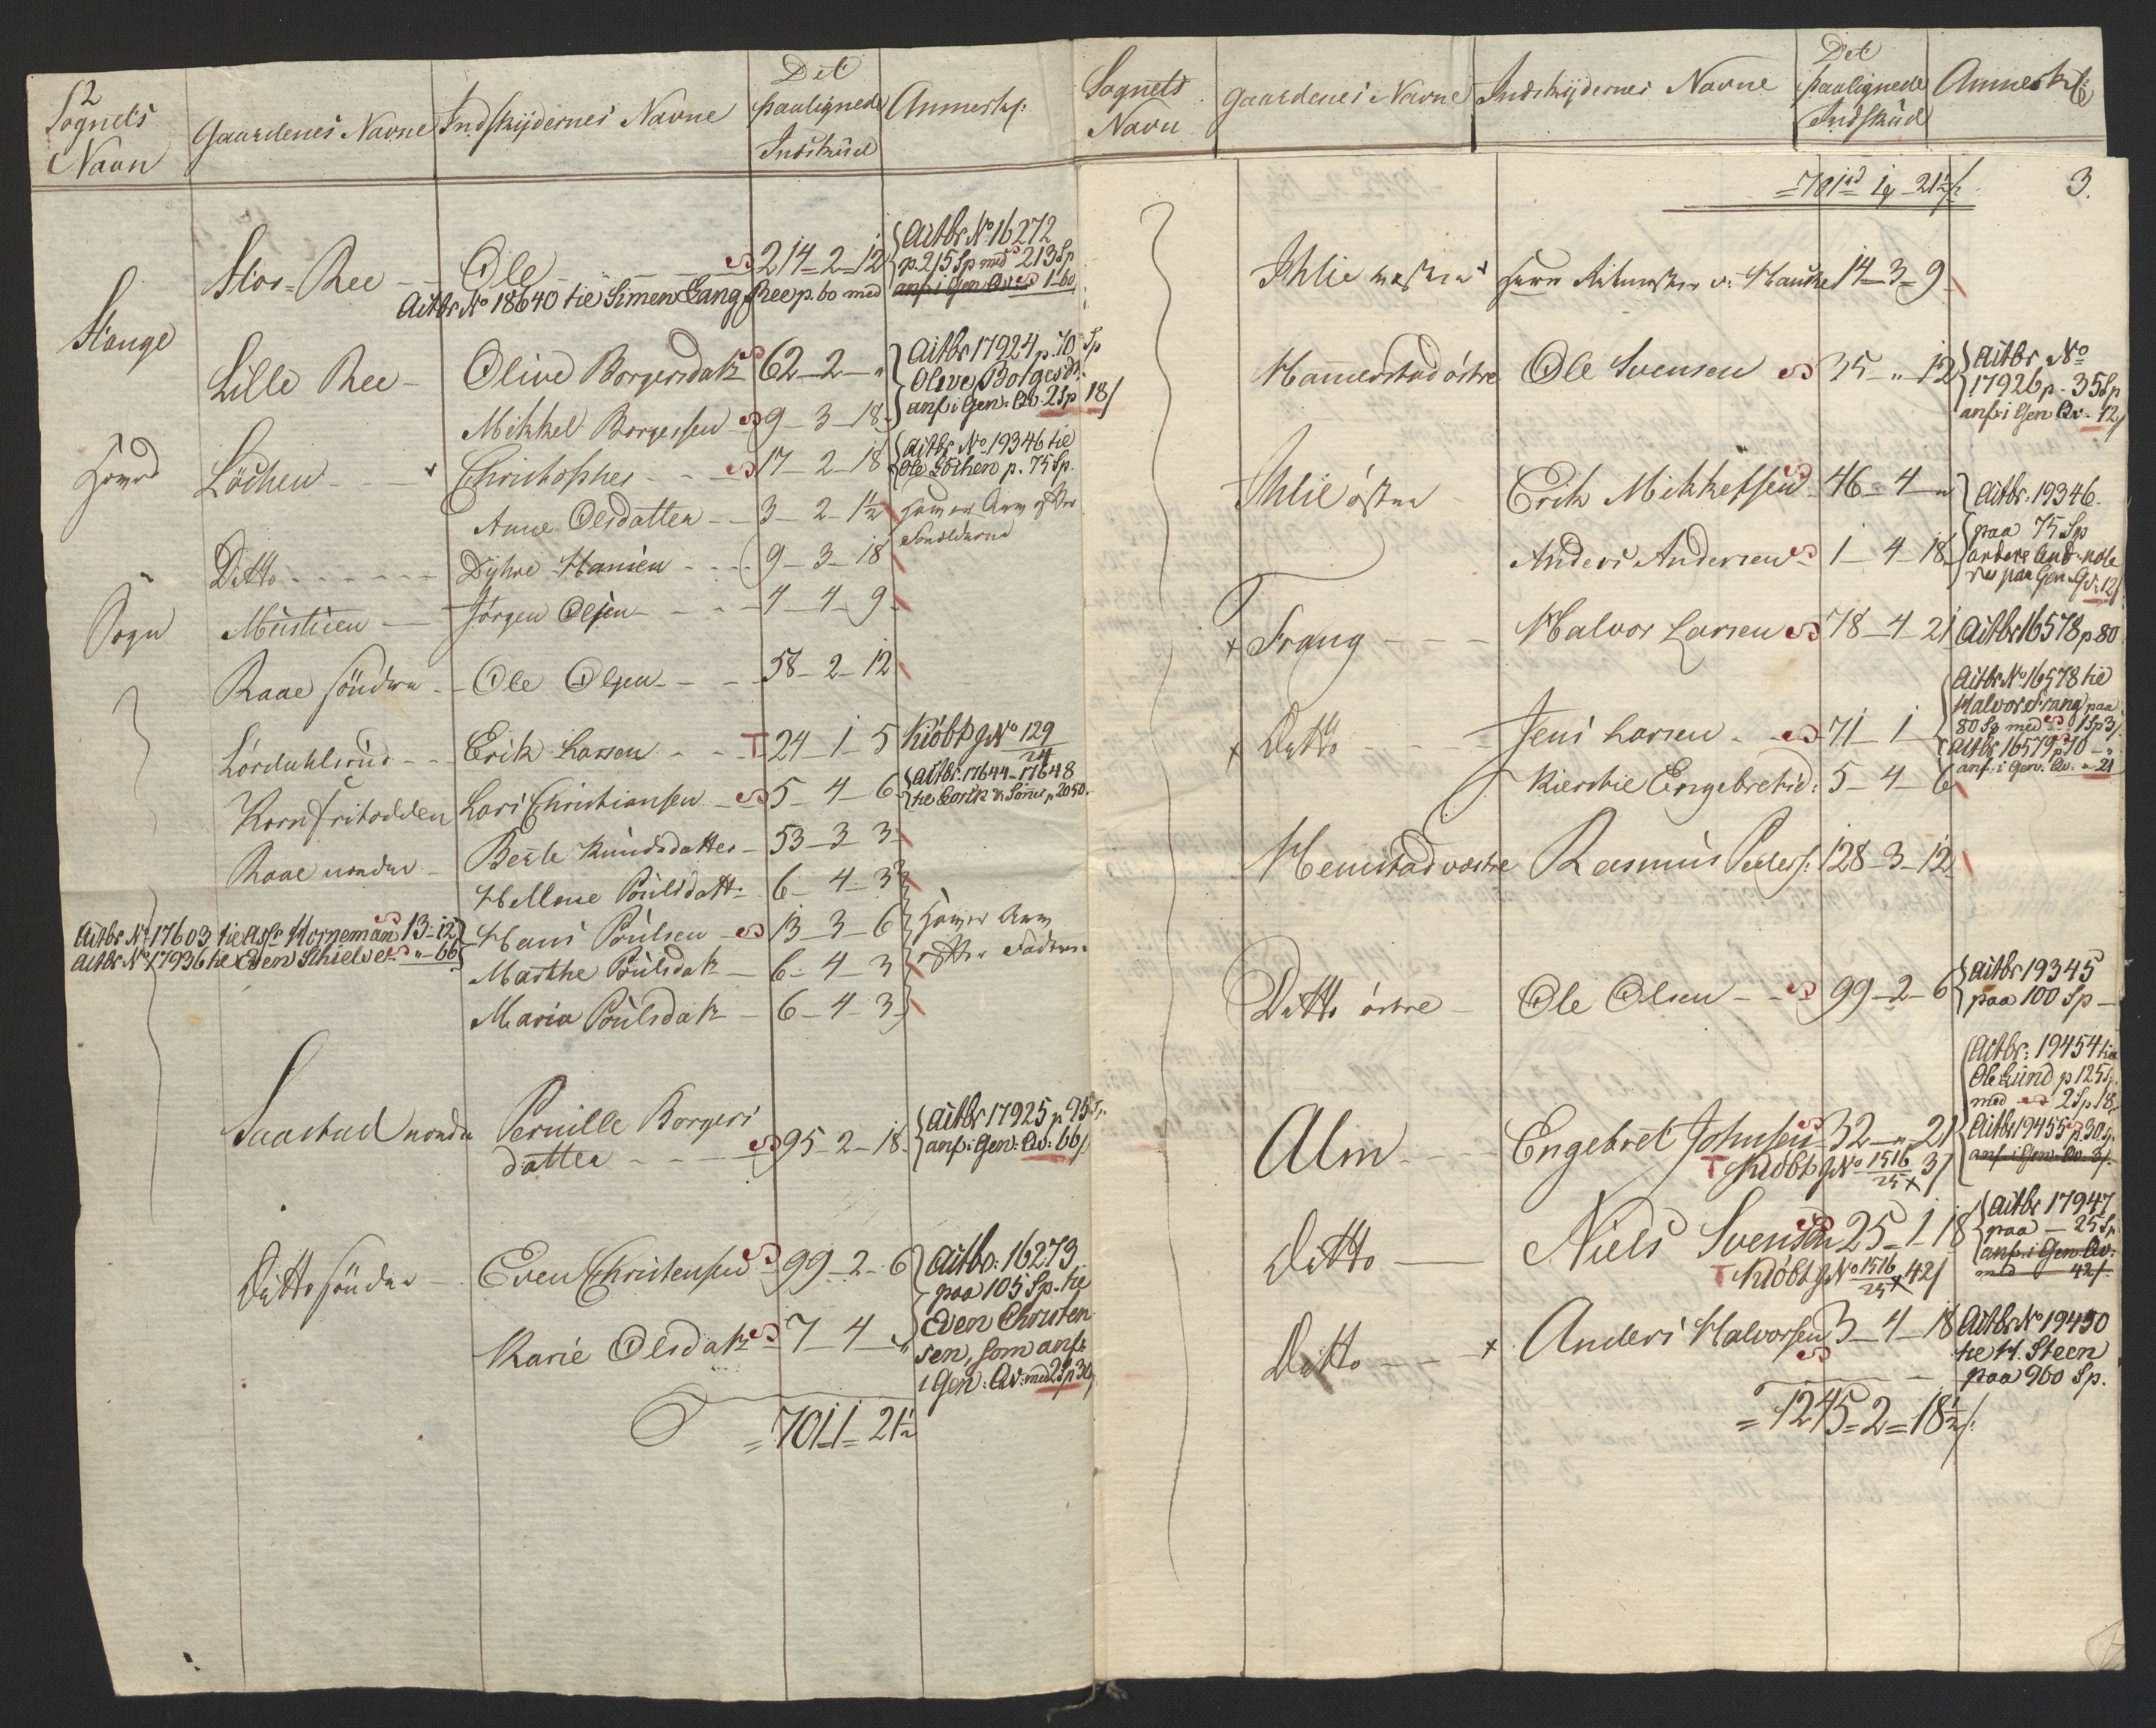 2
Sognets Navn
Gaardenes Navne
Indskydernes Navne
Det paalignede Indskud
Anmerkn:
Stange
Hoved
Sogn
Stor-Ree - - Ole - - - - 214 - 2 - 12
Actbr No 16272
p. 215 Sp med 213 Sp
anf: i Gen: Qv 1-60
Actbr No 18640 til Simen Lang Ree p. 60 med
Lille Ree - Olive Borgersdatr 62 - 2 - "
Actbr 17924 p. 70 Sp
Olive Borgesdr
anf: i Gen: Qv. 2 Sp 18/
Mikkel Borgersen 9 - 3 - 18
Löchen - - - Christopher - - 17 - 2 - 18
Actbr No 19346 til
Ole Löchen p. 75 Sp.
Anne Olsdatter - - 3 - 2 - 1½
Ditto - - - - - - Dyhre Hansen - - - 9 - 3 - 18
Mustuen - Jörgen Olsen - - - 4 - 4 - 9
Raae söndre - - Ole Olsen - - - 58 - 2 - 12
Erik Larsen - - T 24 - 1 - 5
Kiöbt J No 129/24
Lars Christiansen 5 - 4 - 6
Actbr: 17644-17648
Raae nordre - Berte Knudsdatter - 53 - 3 - 3
Hellene Poulsdatt: - 6 - 4 - 3
Hans Poulsen - 13 - 3 - 6
Actbr No 17603 til Assr Horneman 13-12
Actbr No 17936 til Even Schielset " - 66
Marthe Poulsdatr - 6 - 4 - 3
Maria Poulsdatr - 6 - 4 - 3
Saastad nordre Pernille Borgers
datter - - - 95 - 2 - 18.
Actbr 17925 p 95 Sp.
anf: i Gen: Qv: 66/
Ditto söndre - Even Christensen 99 - 2 - 6
Actbr. 16273
paa 105 Sp. til
Even Christen
sen, som anf:
i Gen: Qv: med 2 Sp 30/
Karie Olsdatr 7 - 4 - "
= 701 - 1 - 21½
Sognets Navn
Gaardenes Navne
Indskydernes Navne
Det paalignede Indskud
Anmerkn:
= 701 rd 1 21½ /.
3.
Ihlie vestre Herr Ritmester v: 14 - 3 - 9
Hamerstad östre Ole Svensen 35 - " - 12
Actbr No
17926 p. 35 Sp
anf: i Gen Qv. 12/
Ihlie östre Erik Mikkelsen 46 - 4 - "
Actbr: 19346.
paa 75 Sp
Anders Andersen 1 - 4 - 18
Frang - - - Halvor Larsen 78 - 4 - 21
Actbr 16578 p 80
Ditto - - - - Jens Larsen - - 71 - 1 -
Actbr No 16578 til
Halvor Frang paa
80 Sp med 1 Sp 3/
Actbr 16579 p 70 - "
anf: i Gen: Qv. " 21
Kierstie Engebretsd: 5 - 4 - 6
Hemstad vestre Rasmus Peders: 128 - 3 - 12
Ditto östre - Ole Olsen - - 99 - 2 - 6
Actbr 19345
paa 100 Sp -
Alm - - - - Engebret Johnsen 32 - " - 21
T Kiöbt J No 1516/25 x 3/
Actbr: 19454 til
Ole Lund p 125 Sp
med 2 Sp 18/
Actbr 19455 p. 30 Sp.
anf: i Gen: Qv. 3/.
Ditto - Niels Svensen 25 - 1 - 18
T Kiöbt J No 1516/25 x 42/
Actbr 17947
paa - 25 Sp
anf: i Gen Qv:
med - 42/.
Ditto - - - Anders Halvorsen 3 - 4 - 18
Actbr No 19450
til H. Steen
paa 960 Sp.
= 1245 = 2 = 18½ /.